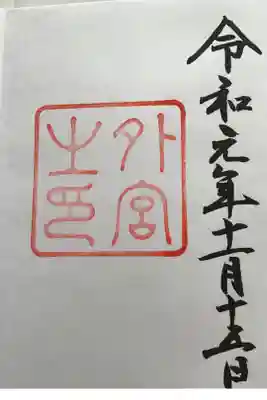 令和元年十一月十五日
外宮
之印